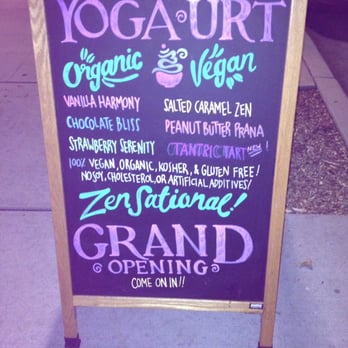 YOGA·URT
Organic Vegan
VANILLA HARMONY SALTED CARAMEL ZEN
CHOCOLATE BLISS PEANUT BUTTER PRANA
STRAWBERRY SERENITY TANTRIC TART NEW!
100% VEGAN, ORGANIC, KOSHER, & GLUTEN FREE!
NO SOY, CHOLESTEROL, OR ARTIFICIAL ADDITIVES!
ZenSational!
GRAND
OPENING
COME ON IN!!